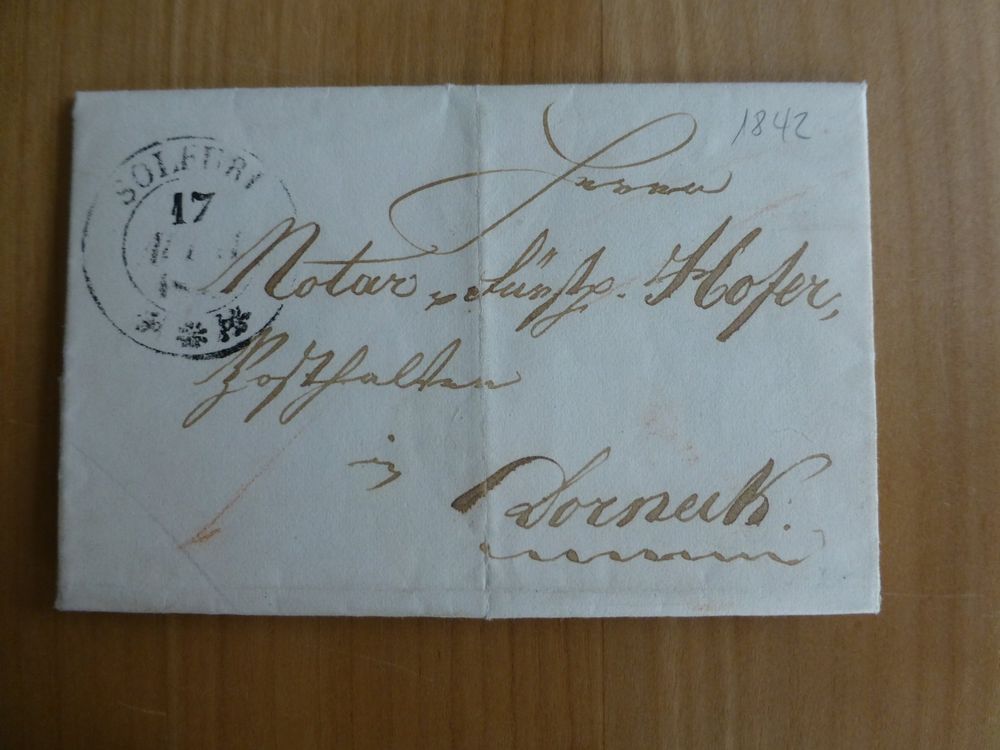 1842
SOLEURE
17
Herrn
Notar u. Fürsp. Hofer,
Posthalter
in
Dorneck.